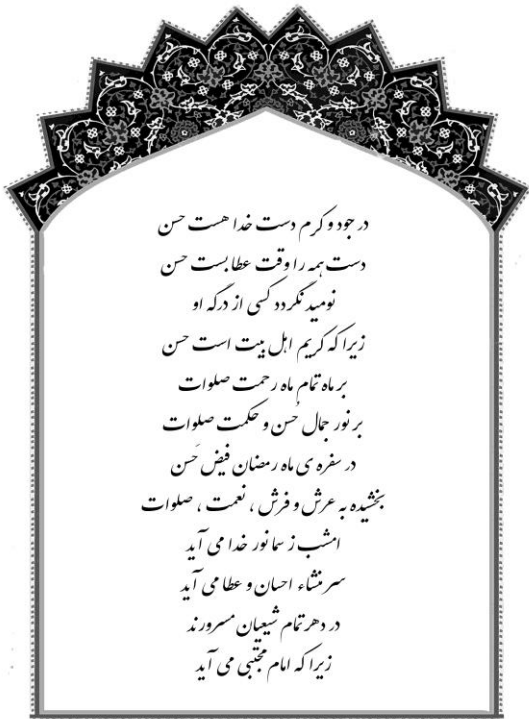 در جود و کرم دست خدا هست حسن
دست همه را وقت عطا بست حسن
نومید نگردد کسی از درگه او
زیرا که کریم اهل بیت است حسن
بر ماه تمام ماه رحمت صلوات
بر نور جمال حُسن و حکمت صلوات
در سفره ی ماه رمضان فیض حَسن
بخشیده به عرش و فرش ، نعمت ، صلوات
امشب ز سما نور خدا می آید
سر منشاء احسان و عطا می آید
در دهر تمام شیعیان مسرورند
زیرا که امام مجتبی می آید